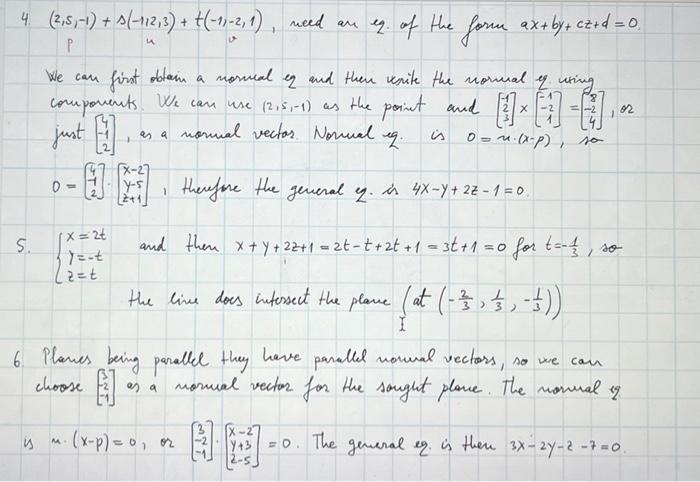 4. (2,5,-1) + s(-1,2,3) + t(-1,-2,1), need an eq. of the form ax+by+cz+d=0.
p u v
We can first obtain a normal eq and then write the normal eq. using
components. We can use (2,5,-1) as the point and [-1 2 3] × [-1 -2 1] = [8 -2 4], or
just [4 -1 2], as a normal vector. Normal eq. is 0 = n·(x-p), so
0 = [4 -1 2] · [x-2 y-5 z+1], therefore the general eq. is 4x-y+2z-1=0.
5. { x=2t y=-t z=t and then x+y+2z+1 = 2t-t+2t+1 = 3t+1 = 0 for t=-1/3, so
the line does intersect the plane (at (-2/3, 1/3, -1/3))
6. Planes being parallel they have parallel normal vectors, so we can
choose [3 -2 -1] as a normal vector for the sought plane. The normal eq
is n·(x-p)=0, or [3 -2 -1] · [x-2 y+3 z-5] = 0. The general eq. is then 3x-2y-z-7=0.